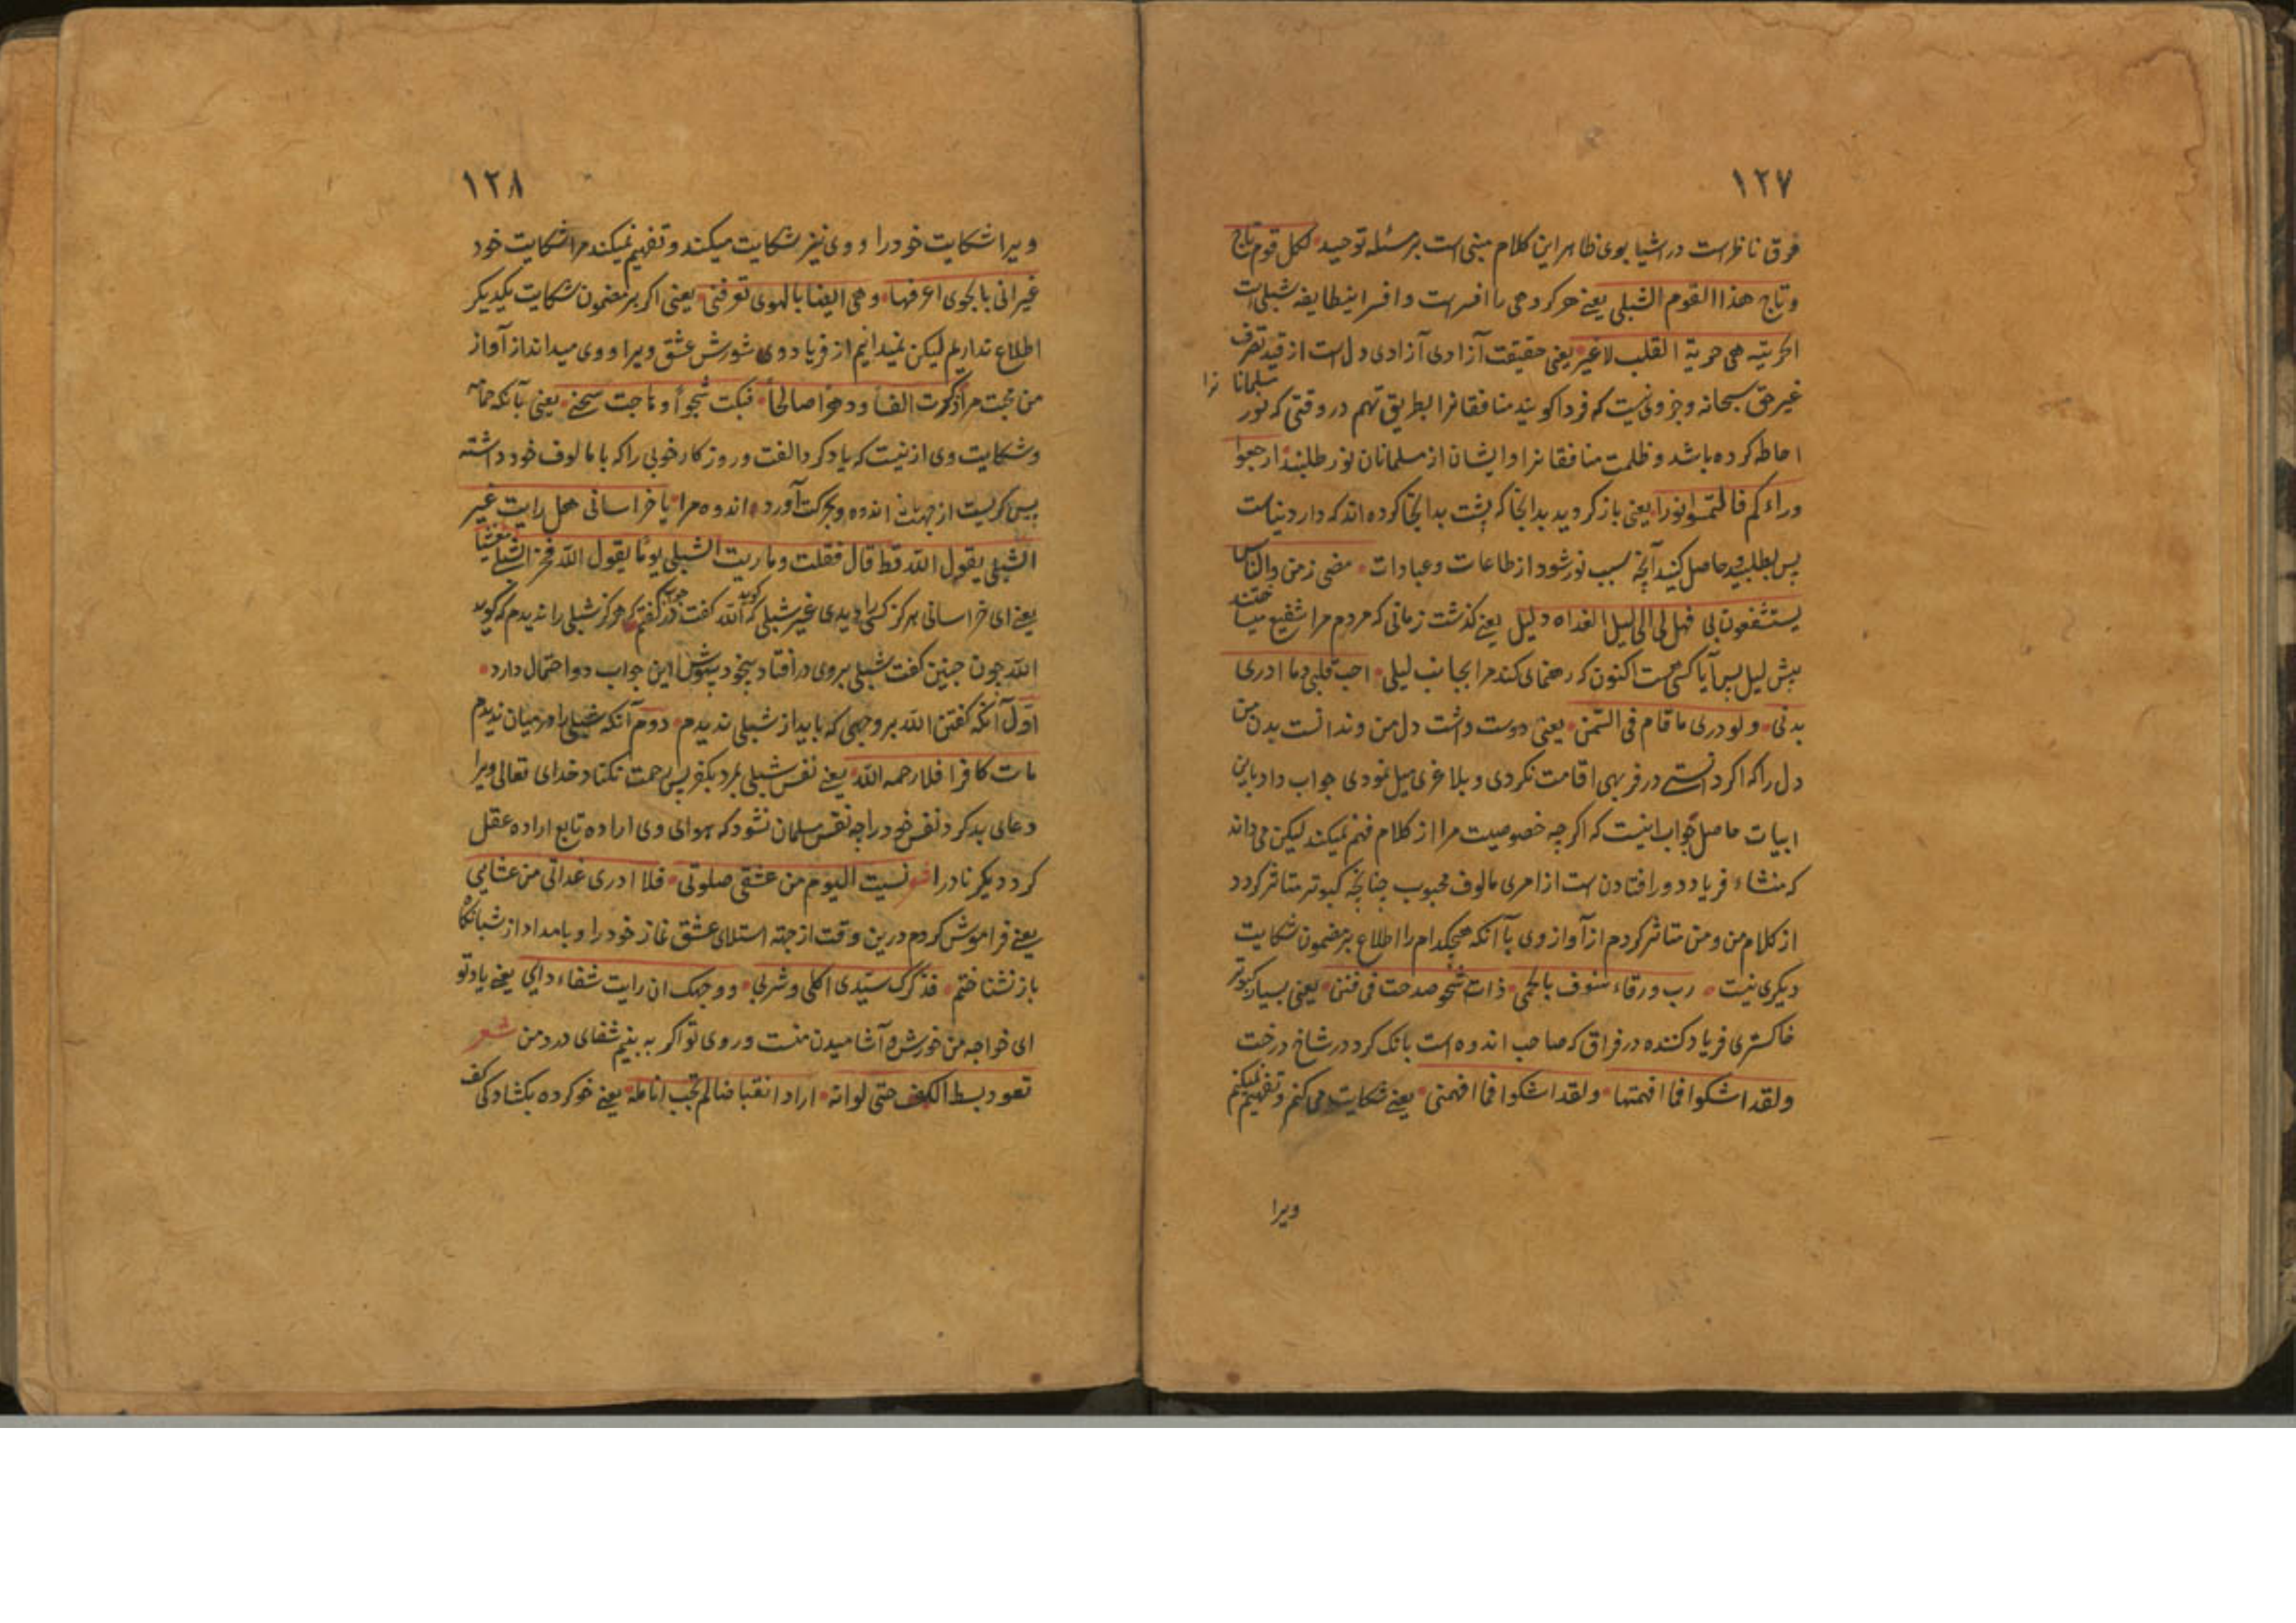 ١٢٧
فوق ناظر است در اشیا بوی ظاهر این کلام مبنی است بر مسئله توحید لکل قوم تاج
وتاج هذا القوم الشبلی یعنے هر کروهی را افسر است وافسر اینطایفه شبلی است
الحریته هی حریة القلب لاغیر یعنی حقیقت آزادی آزادی دل است از قید تصرف
غیر حق سبحانه وجز وی نیست که فردا کویند منافقانرا بطریق تهم در وقتی که نور مسلمانانرا
احاطه کرده باشد وظلمت منافقانرا وایشان از مسلمانان نور طلبند ارجعوا
وراءکم فالتمسوا نورا یعنی باز کردید بدانجا که پشت بدانجا کرده اند که دار دنیاست
پس بطلبید وحاصل کنید آنچه سبب نور شود از طاعات وعبادات مضی زمن والناس
یستشفعون بی فهل لی الی لیلی الغداه دلیل یعنے کذشت زمانی که مردم مرا شفیع میساختند
پیش لیلی پس آیا کسی هست اکنون که رهنمای کند مرا بجانب لیلی احب قلبی وما ادری
بدنی ولو دری ما قام فی السمن یعنی دوست داشت دل من وندانست بدن من
دل را که اکر دانستے در فربهی اقامت نکردی وبلاغری میل نمودی جواب داد باین
ابیات حاصل جواب اینست که اکرچه خصوصیت مرا از کلام فهم نمیکند لیکن می داند
که منشاء فریاد دور افتادن است از امری مالوف محبوب چنانچه کبوتر متاثر کردد
از کلام من ومن متاثر کردم از آواز وی با آنکه هیچکدام را اطلاع بر مضمون شکایت
دیکری نیست رب ورقاء هتوف بالحمی ذات شجو صدحت فی فنن یعنی بسیار کبوتر
خاکستری فریاد کننده در فراق که صاحب اندوه است بانک کرد در شاخ درخت
ولقد اشکوا فما افهمتها ولقد اشکوا فما افهمنی یعنے شکایت می کنم وتفهیم نمیکنم
ویرا
١٢٨
ویرا شکایت خود را ووی نیز شکایت میکند وتفهیم نمیکند مرا شکایت خود
غیر انی بالجوی اعرفها وهی ایضا بالهوی تعرفنی یعنی اکر بر مضمون شکایت یکدیکر
اطلاع نداریم لیکن نمیدانیم از فریاد وی شورش عشق ویرا ووی میداند از آواز
من محبت مرا ذکرت الفا ودهرا صالحا فبکت شجوا وهاجت شجنے یعنی بآنکه حمامه
وشکایت وی از نیست که یاد کرد الفت وروزکار خوبی را که با مالوف خود داشته
پس کریست از جهت اندوه وبحرکت آورد اندوه مرا یا خراسانی هل رایت غیر
الشبلی یقول الله قط قال فقلت وما ریت الشبلی یوما یقول الله فخر الشبلے مغشیا
یعنے ای خراسانی هرکز کسی را دیدی غیر شبلی که کوید الله کفت در جواب کفتم که هرکز شبلی را ندیدم که کوید
الله چون چنین کفت شبلی بروی در افتاد بیخود بیهوش این جواب دو احتمال دارد
اول آنکه کفتن الله بر وجهی که باید از شبلی ندیدم دوم آنکه شبلی را در میان ندیدم
مات کافرا فلا رحمه الله یعنے نفس شبلی بمرد بکفر پس رحمت نکناد خدای تعالی ویرا
دعای بد کرد نفس خود را چه نفس مسلمان نشود که هوای وی اراده تابع اراده عقل
کردد دیکر نادرا نسیت الیوم من عشقی صلوتی فلا ادری غداتی من عشایی
یعنے فراموش کردم درین وقت از جهته استلای عشق نماز خود را وبامداد از شبانکاه
باز نشناختم فذکرک سیدی اکلی وشربی ووجهک ان رایت شفاء دایی یعنے یاد تو
ای خواجه من خورش وآشامیدن منست وروی تو اکر به بینم شفای درد من شعر
تعود بسط الکف حتی لو انه اراد انقباضا لم تجب انامله یعنے خو کرده بکشادکی کف